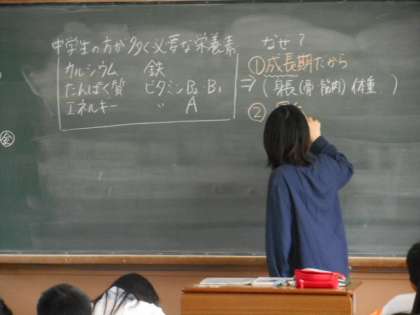 中学生の方が多く必要な栄養素
カルシウム 鉄
たんぱく質 ビタミンB₂・B₁
エネルギー 〃 A
なぜ？
①成長期だから
⇒(身長(骨 筋肉) 体重 )
②